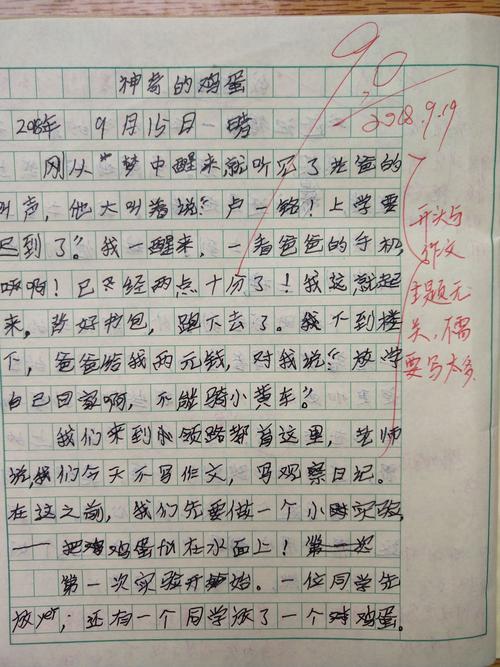 神奇的鸡蛋
90
2018.9.19
2018年 9月15日 晴
刚从梦中醒来,就听见了老爸的
叫声,他大叫着说:"卢一铭!上学要
迟到了"。我一醒来,一看爸爸的手机,
啊!已经两点十分了!我这就起
来,整好书包,跑下去了。我下到楼
下,爸爸给我两元钱,对我说:"放学
自己回家啊,不能骑小黄车。"
我们来到小领路都首这里,老师
说,我们今天不写作文,写观察日记。
在这之前,我们先要做一个小实验,
——把鸡蛋似在水面上!第一次
第一次实验开始。一位同学先
放yer;还有一个同学放了一个鸡蛋。
开头与
作文
主题无
关,不需
要写太多